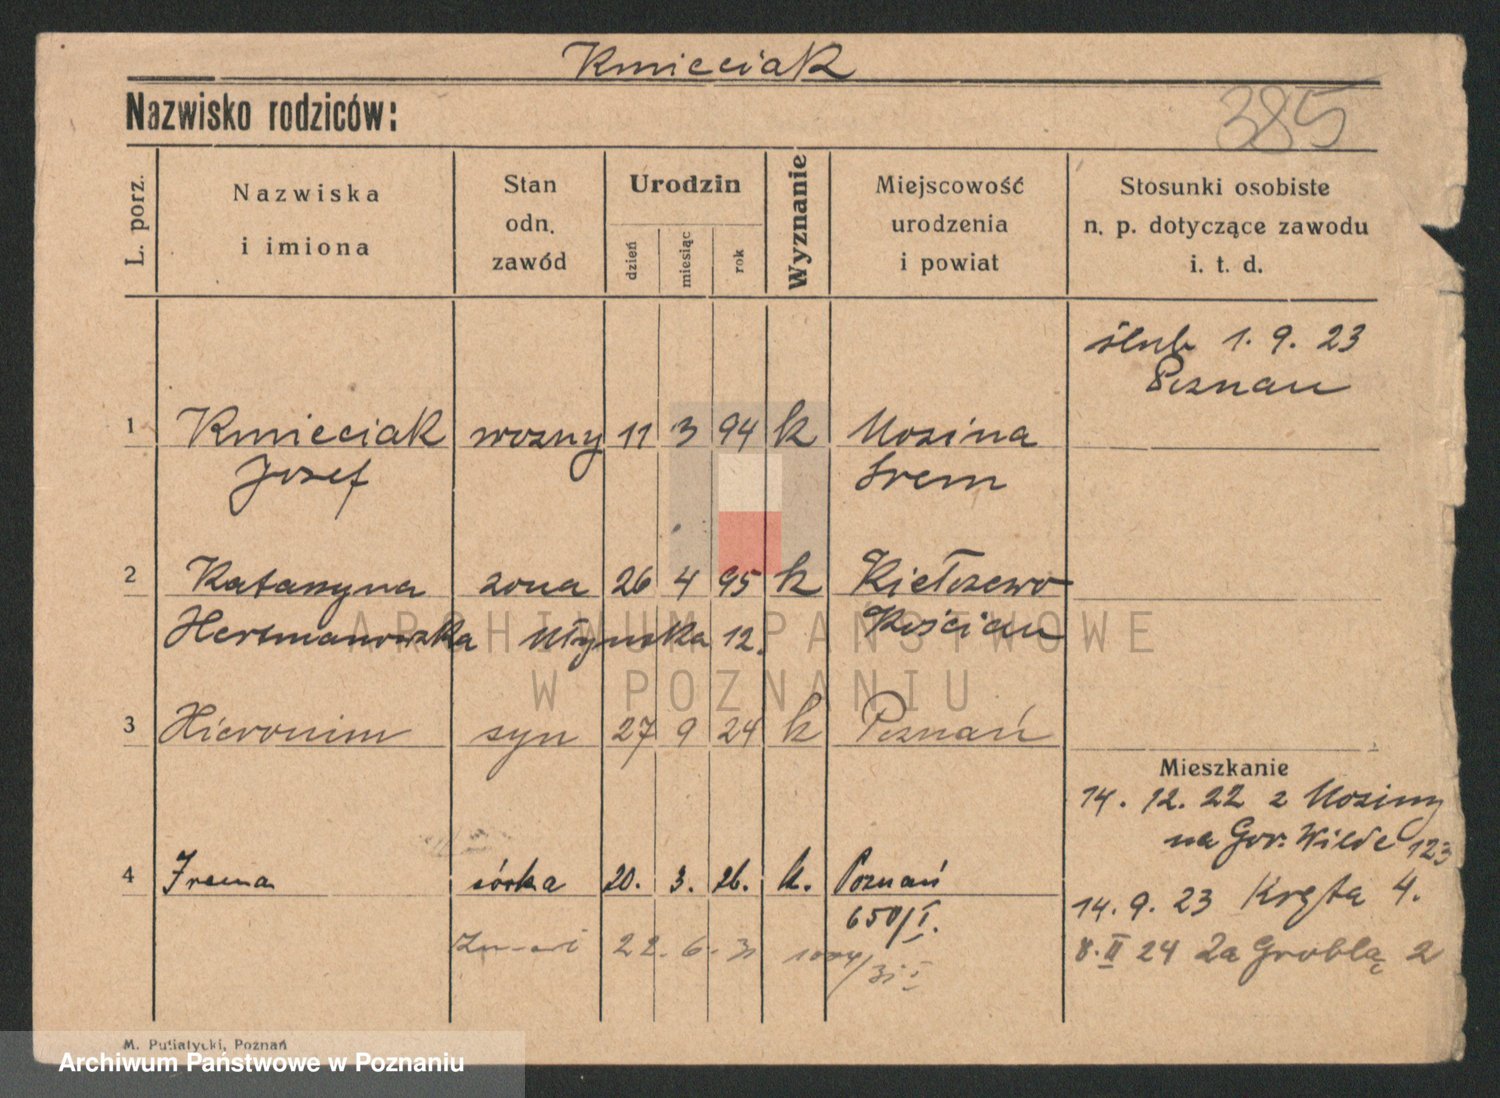 Kmieciak
Nazwisko rodziców:
385
L. porz.
Nazwiska
i imiona
Stan
odn.
zawód
Urodzin
dzień
miesiąc
rok
Wyznanie
Miejscowość
urodzenia
i powiat
Stosunki osobiste
n. p. dotyczące zawodu
i. t. d.
ślub 1. 9. 23
Poznań
1 Kmieciak wozny 11 3 94 k Mosina
Jozef Srem
2 Katarzyna zona 26 4 95 k Kiełczewo
Hertmanowska 12. Kościan
ARCHIWUM PAŃSTWOWE
W POZNANIU
3 Hieronim syn 27 9 24 k Poznań
Mieszkanie
14. 12. 22 z Mosiny
na Gór. Wilde 123
4 Irena córka 20. 3. 26. k. Poznań
650/I.
14. 9. 23 Kręta 4.
22. 6. 31
8. II 24 Za Groblą 2
M. Putiatycki, Poznań
Archiwum Państwowe w Poznaniu